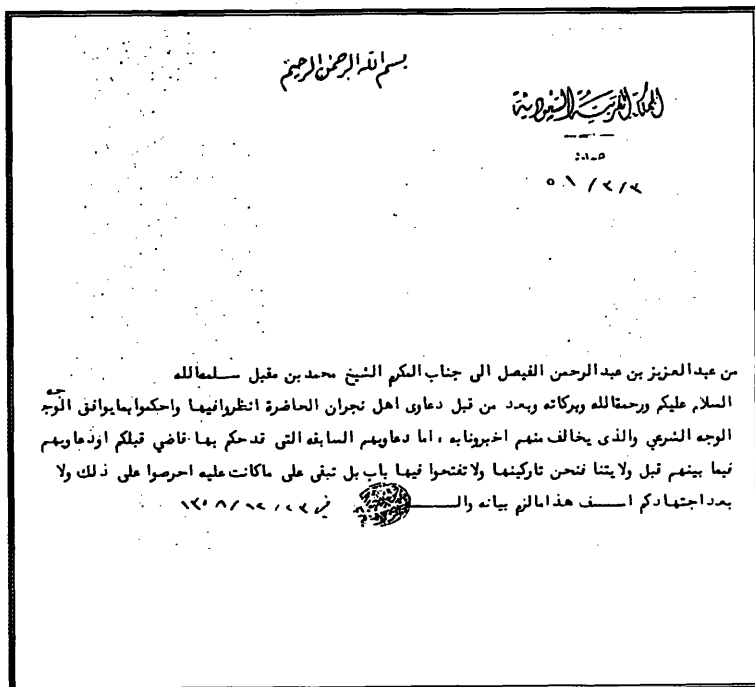 بسم الله الرحمن الرحيم
المملكة العربية السعودية
من عبدالعزيز بن عبدالرحمن الفيصل الى جناب المكرم الشيخ محمد بن مقبل سلمه الله
السلام عليكم ورحمة الله وبركاته وبعد من قبل دعاوى اهل نجران الحاضرة انظروا فيها واحكموا بما يوافق الوجه
الوجه الشرعي والذى يخالف منهم اخبرونا به ، اما دعاويهم السابقه التى قد حكم بها قاضي قبلكم اودعاويهم
فيما بينهم قبل ولايتنا فنحن تاركينها ولا تفتحوا فيها باب بل تبقى على ماكانت عليه احرصوا على ذلك ولا
بعد اجتهادكم اسف هذا مالزم بيانه والسـ في ٢٣/١٢/١٣٥٨